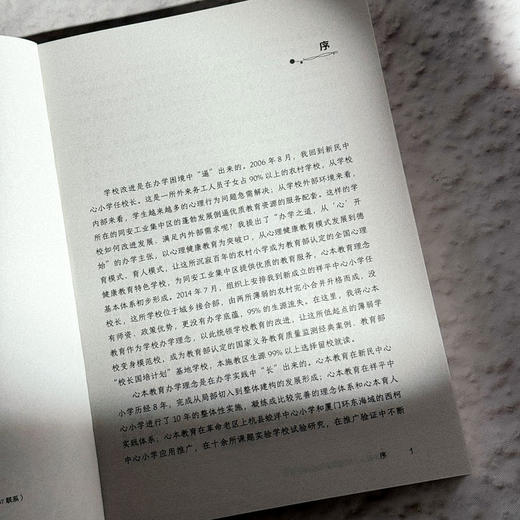 序
学校改进是在办学困境中“逼”出来的。2006年8月，我回到新民中
心小学任校长。这是一所外来务工人员子女占90%以上的农村学校，从学校
内部来看，学生越来越多的心理行为问题急需解决；从学校外部环境来看，
所在的同安工业集中区的蓬勃发展倒逼优质教育资源的服务配套。这样的学
校如何改进发展、满足内外部需求呢？我提出了“办学之道，从‘心’开
始”的办学主张，以心理健康教育为突破口，从心理健康教育模式发展到德
育模式、育人模式，让这所沉寂百年的农村小学成为教育部认定的全国心理
健康教育特色学校，为同安工业集中区提供优质的教育服务，心本教育理念
基本体系初步形成。2014年7月，组织上安排我到新成立的祥平中心小学任
校长，这所学校位于城乡接合部，由两所薄弱的农村完小合并升格而成，没
有师资、政策优势，更没有办学底蕴，95%的生源流失。在这里，我将心本
教育作为学校办学理念，以此统领学校教育的改进，让这所低起点的薄弱学
校变身模范校，成为教育部认定的国家义务教育质量监测经典案例、教育部
“校长国培计划”基地学校，本施教区生源99%以上选择留校就读。
心本教育办学理念是在办学实践中“长”出来的。心本教育在新民中心
小学历经8年，完成从局部切入到整体建构的发展形成；心本教育在祥平中
心小学进行了10年的整体性实施，凝练成比较完善的理念体系和心本育人
实践体系；心本教育在革命老区上杭县蛟洋中心小学和厦门环东海域的西柯
中心小学应用推广，在十余所课题实验学校试验研究，在推广验证中不断
序 1
联系）